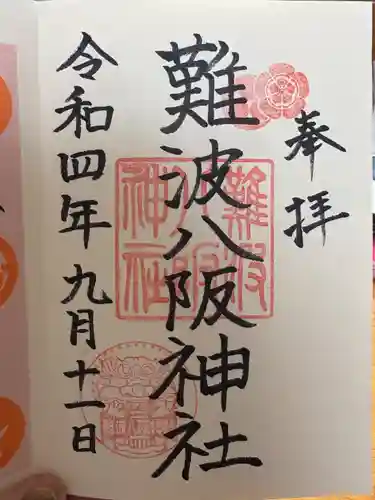 奉拝
難波八阪神社
難波
八阪
神社
令和四年九月十一日